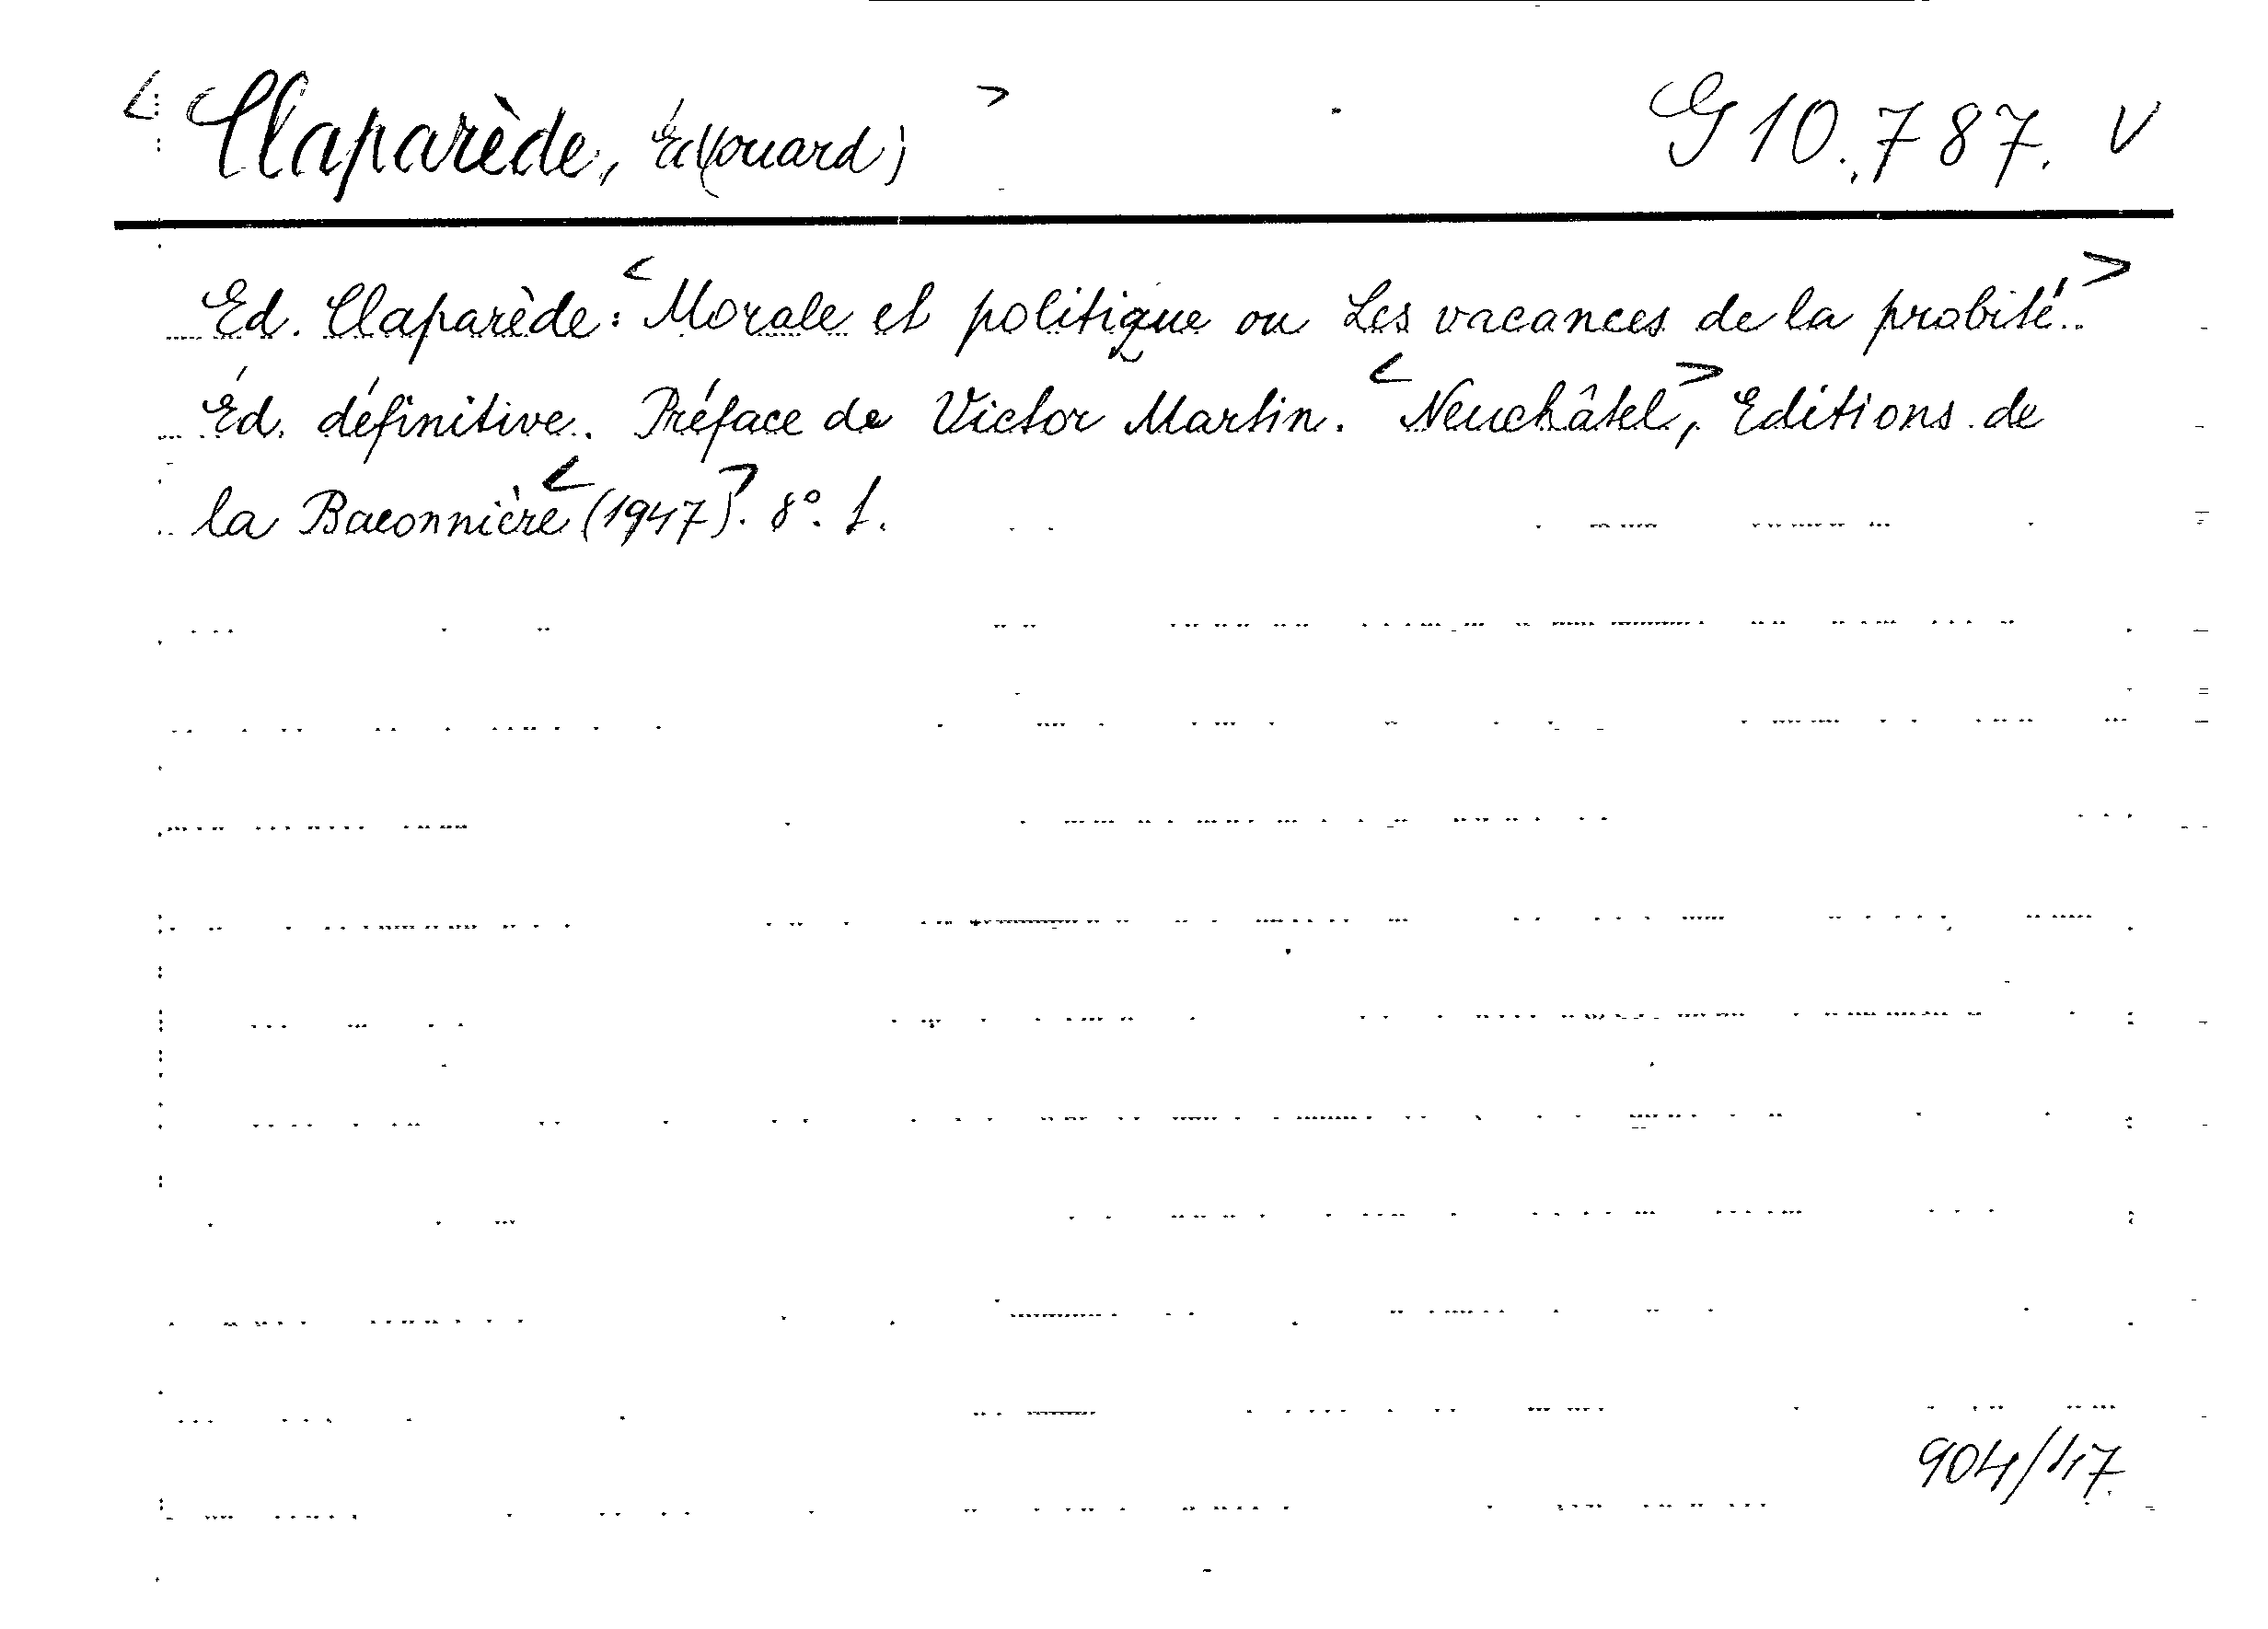 < Claparède, Éd(ouard) > G 10.787. V
Ed. Claparède: <Morale et politique ou Les vacances de la probité.>
Éd. définitive. Préface de Victor Martin. <Neuchâtel>, Editions de
la Baconnière <(1947)>. 8°. 1.
904/47